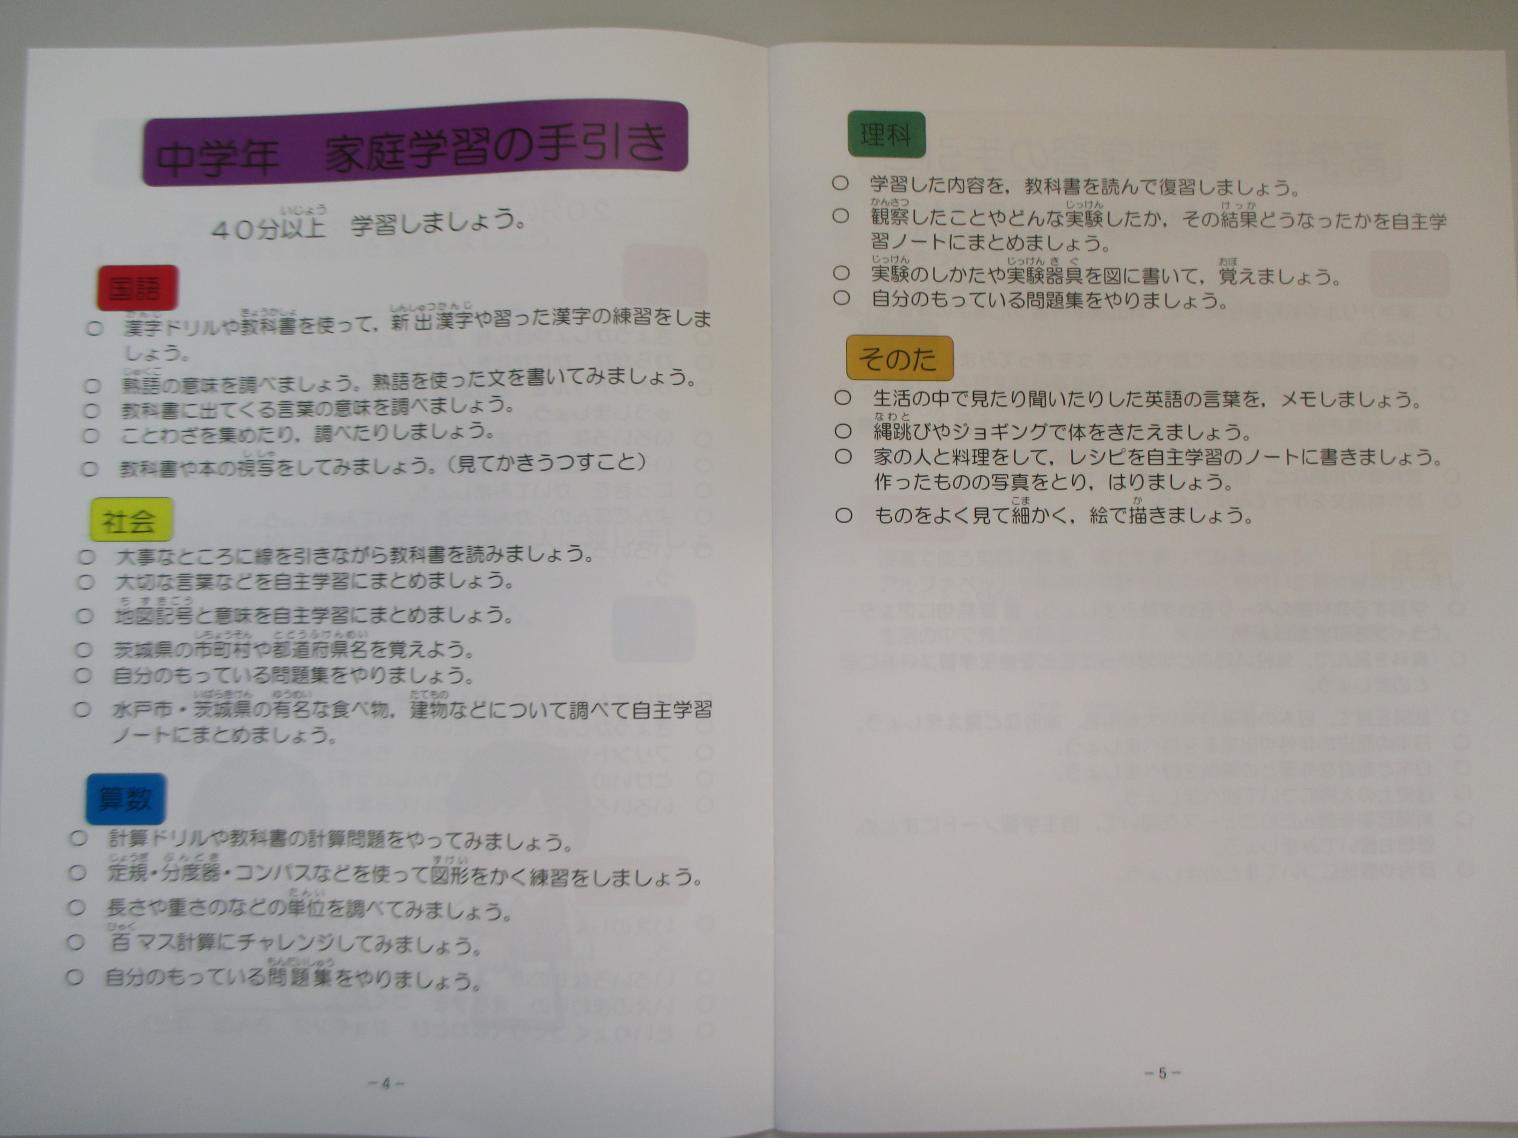 中学年　家庭学習の手引き
４０分以上　学習しましょう。
国語
○　漢字ドリルや教科書を使って，新出漢字や習った漢字の練習をしま
しょう。
○　熟語の意味を調べましょう。熟語を使った文を書いてみましょう。
○　教科書に出てくる言葉の意味を調べましょう。
○　ことわざを集めたり，調べたりしましょう。
○　教科書や本の視写をしてみましょう。（見てかきうつすこと）
社会
○　大事なところに線を引きながら教科書を読みましょう。
○　大切な言葉などを自主学習にまとめましょう。
○　地図記号と意味を自主学習にまとめましょう。
○　茨城県の市町村や都道府県名を覚えよう。
○　自分のもっている問題集をやりましょう。
○　水戸市・茨城県の有名な食べ物，建物などについて調べて自主学習
ノートにまとめましょう。
算数
○　計算ドリルや教科書の計算問題をやってみましょう。
○　定規・分度器・コンパスなどを使って図形をかく練習をしましょう。
○　長さや重さのなどの単位を調べてみましょう。
○　百マス計算にチャレンジしてみましょう。
○　自分のもっている問題集をやりましょう。
－4－
理科
○　学習した内容を，教科書を読んで復習しましょう。
○　観察したことやどんな実験したか，その結果どうなったかを自主学
習ノートにまとめましょう。
○　実験のしかたや実験器具を図に書いて，覚えましょう。
○　自分のもっている問題集をやりましょう。
そのた
○　生活の中で見たり聞いたりした英語の言葉を，メモしましょう。
○　縄跳びやジョギングで体をきたえましょう。
○　家の人と料理をして，レシピを自主学習のノートに書きましょう。
作ったものの写真をとり，はりましょう。
○　ものをよく見て細かく，絵で描きましょう。
－5－